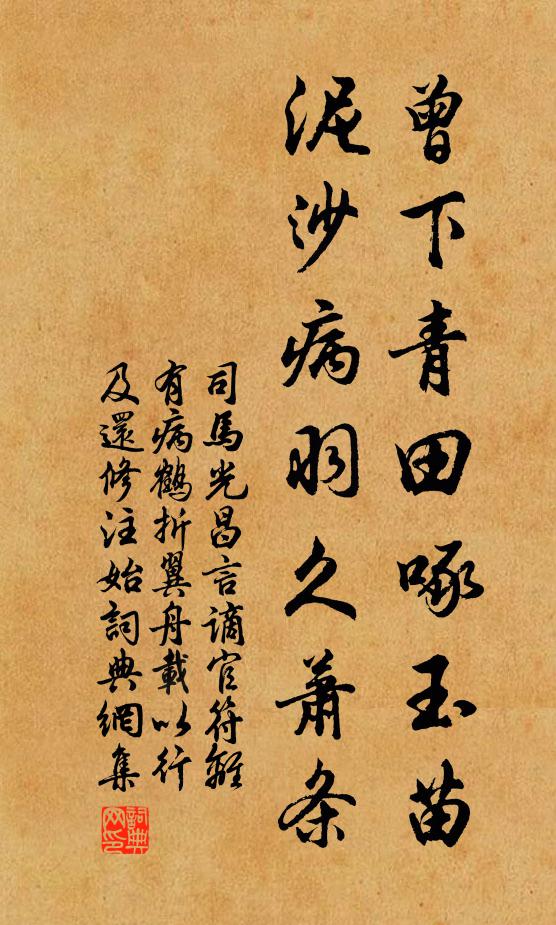 曾下青田啄玉苗
泥沙病羽久蕭条
司馬光昌言謫官符離
有病鶴折翼舟載以行
及還修注始詞典網集
詞典
网印